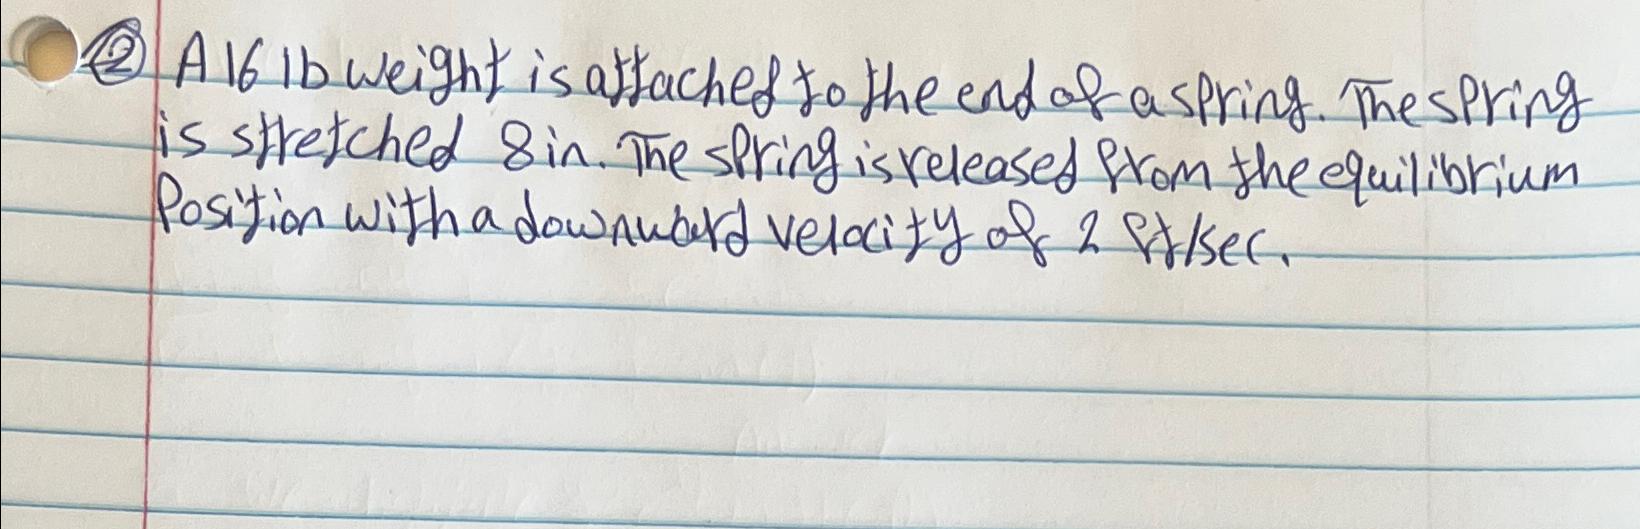 ② A 16 lb weight is attached to the end of a spring. The spring
is stretched 8 in. The spring is released from the equilibrium
Position with a downward velocity of 2 ft/sec.